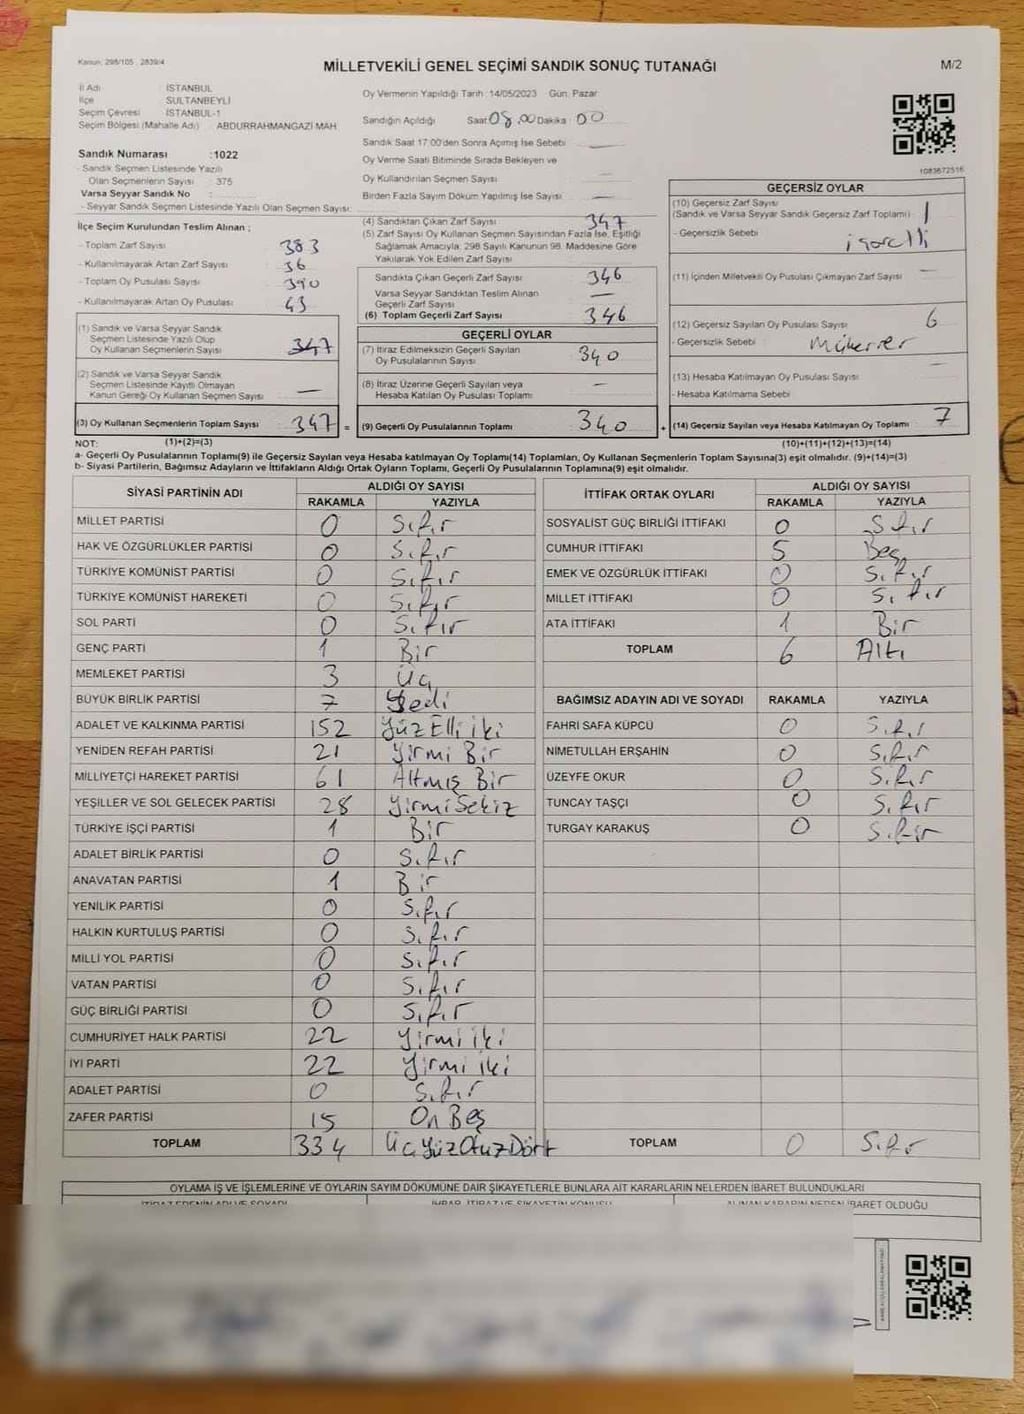 Kanun: 298/105 2839/4
MİLLETVEKİLİ GENEL SEÇİMİ SANDIK SONUÇ TUTANAĞI
M/2
İl Adı : İSTANBUL
İlçe : SULTANBEYLİ
Seçim Çevresi : İSTANBUL-1
Seçim Bölgesi (Mahalle Adı) : ABDURRAHMANGAZİ MAH
Sandık Numarası :1022
- Sandık Seçmen Listesinde Yazılı
Olan Seçmenlerin Sayısı : 375
Varsa Seyyar Sandık No :
- Seyyar Sandık Seçmen Listesinde Yazılı Olan Seçmen Sayısı:
Oy Vermenin Yapıldığı Tarih :14/05/2023 Gün: Pazar
Sandığın Açıldığı Saat: 08.00 Dakika: 00
Sandık Saat 17:00'den Sonra Açımış İse Sebebi —
Oy Verme Saati Bitiminde Sırada Bekleyen ve
Oy Kullandırılan Seçmen Sayısı —
Birden Fazla Sayım Döküm Yapılmış İse Sayısı: —
1083672516
İlçe Seçim Kurulundan Teslim Alınan ;
- Toplam Zarf Sayısı 383
- Kullanılmayarak Artan Zarf Sayısı 36
- Toplam Oy Pusulası Sayısı 390
- Kullanılmayarak Artan Oy Pusulası 43
(1) Sandık ve Varsa Seyyar Sandık
Seçmen Listesinde Yazılı Olup
Oy Kullanan Seçmenlerin Sayısı 347
(2) Sandık ve Varsa Seyyar Sandık
Seçmen Listesinde Kayıtlı Olmayan
Kanun Gereği Oy Kullanan Seçmen Sayısı —
(3) Oy Kullanan Seçmenlerin Toplam Sayısı 347 =
(4) Sandıktan Çıkan Zarf Sayısı 347
(5) Zarf Sayısı Oy Kullanan Seçmen Sayısından Fazla İse, Eşitliği
Sağlamak Amacıyla; 298 Sayılı Kanunun 98. Maddesine Göre
Yakılarak Yok Edilen Zarf Sayısı
Sandıkta Çıkan Geçerli Zarf Sayısı 346
Varsa Seyyar Sandıktan Teslim Alınan
Geçerli Zarf Sayısı —
(6) Toplam Geçerli Zarf Sayısı 346
GEÇERLİ OYLAR
(7) İtiraz Edilmeksizin Geçerli Sayılan
Oy Pusulalarının Sayısı 340
(8) İtiraz Üzerine Geçerli Sayılan veya
Hesaba Katılan Oy Pusulası Toplamı —
(9) Geçerli Oy Pusulalarının Toplamı 340 +
GEÇERSİZ OYLAR
(10) Geçersiz Zarf Sayısı
(Sandık ve Varsa Seyyar Sandık Geçersiz Zarf Toplamı) 1
- Geçersizlik Sebebi işaretli
(11) İçinden Milletvekili Oy Pusulası Çıkmayan Zarf Sayısı —
(12) Geçersiz Sayılan Oy Pusulası Sayısı 6
- Geçersizlik Sebebi Mükerrer
(13) Hesaba Katılmayan Oy Pusulası Sayısı —
- Hesaba Katılmama Sebebi
(14) Geçersiz Sayılan veya Hesaba Katılmayan Oy Toplamı 7
NOT: (1)+(2)=(3)
(10)+(11)+(12)+(13)=(14)
a- Geçerli Oy Pusulalarının Toplamı(9) ile Geçersiz Sayılan veya Hesaba katılmayan Oy Toplamı(14) Toplamları, Oy Kullanan Seçmenlerin Toplam Sayısına(3) eşit olmalıdır. (9)+(14)=(3)
b- Siyasi Partilerin, Bağımsız Adayların ve İttifakların Aldığı Ortak Oyların Toplamı, Geçerli Oy Pusulalarının Toplamına(9) eşit olmalıdır.
SİYASİ PARTİNİN ADI
ALDIĞI OY SAYISI
RAKAMLA YAZIYLA
MİLLET PARTİSİ 0 Sıfır
HAK VE ÖZGÜRLÜKLER PARTİSİ 0 Sıfır
TÜRKİYE KOMÜNİST PARTİSİ 0 Sıfır
TÜRKİYE KOMÜNİST HAREKETİ 0 Sıfır
SOL PARTİ 0 Sıfır
GENÇ PARTİ 1 Bir
MEMLEKET PARTİSİ 3 Üç
BÜYÜK BİRLİK PARTİSİ 7 Yedi
ADALET VE KALKINMA PARTİSİ 152 Yüz Elli iki
YENİDEN REFAH PARTİSİ 21 Yirmi Bir
MİLLİYETÇİ HAREKET PARTİSİ 61 Altmış Bir
YEŞİLLER VE SOL GELECEK PARTİSİ 28 Yirmi Sekiz
TÜRKİYE İŞÇİ PARTİSİ 1 Bir
ADALET BİRLİK PARTİSİ 0 Sıfır
ANAVATAN PARTİSİ 1 Bir
YENİLİK PARTİSİ 0 Sıfır
HALKIN KURTULUŞ PARTİSİ 0 Sıfır
MİLLİ YOL PARTİSİ 0 Sıfır
VATAN PARTİSİ 0 Sıfır
GÜÇ BİRLİĞİ PARTİSİ 0 Sıfır
CUMHURİYET HALK PARTİSİ 22 Yirmi iki
İYİ PARTİ 22 Yirmi iki
ADALET PARTİSİ 0 Sıfır
ZAFER PARTİSİ 15 On Beş
TOPLAM 334 Üç Yüz Otuz Dört
İTTİFAK ORTAK OYLARI
ALDIĞI OY SAYISI
RAKAMLA YAZIYLA
SOSYALİST GÜÇ BİRLİĞİ İTTİFAKI 0 Sıfır
CUMHUR İTTİFAKI 5 Beş
EMEK VE ÖZGÜRLÜK İTTİFAKI 0 Sıfır
MİLLET İTTİFAKI 0 Sıfır
ATA İTTİFAKI 1 Bir
TOPLAM 6 Altı
BAĞIMSIZ ADAYIN ADI VE SOYADI RAKAMLA YAZIYLA
FAHRİ SAFA KÜPCÜ 0 Sıfır
NİMETULLAH ERŞAHİN 0 Sıfır
ÜZEYFE OKUR 0 Sıfır
TUNCAY TAŞÇI 0 Sıfır
TURGAY KARAKUŞ 0 Sıfır
TOPLAM 0 Sıfır
OYLAMA İŞ VE İŞLEMLERİNE VE OYLARIN SAYIM DÖKÜMÜNE DAİR ŞİKAYETLERLE BUNLARA AİT KARARLARIN NELERDEN İBARET BULUNDUKLARI
İTİRAZ EDENİN ADI VE SOYADI İHBAR, İTİRAZ VE ŞİKAYETİN KONUSU ALINAN KARARIN NEDEN İBARET OLDUĞU